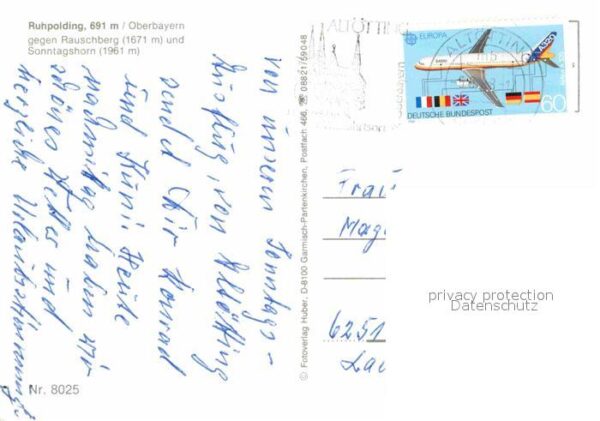 Ruhpolding, 691 m / Oberbayern
gegen Rauschberg (1671 m) und
Sonntagshorn (1961 m)
von unserm Sonntags-
Ausflug, von Altötting
sendet Dir Konrad
und Heute
nachmittag haben wir
schönes Wetter und
herzliche Urlaubsstimmung!
Nr. 8025
© Fotoverlag Huber, D-8100 Garmisch-Partenkirchen, Postfach 466, ☎ 08821/59048
ALTÖTTING
EUROPA
A320
60
DEUTSCHE BUNDESPOST
ALTÖTTING
Frau
Mag
6251
Lau
privacy protection
Datenschutz